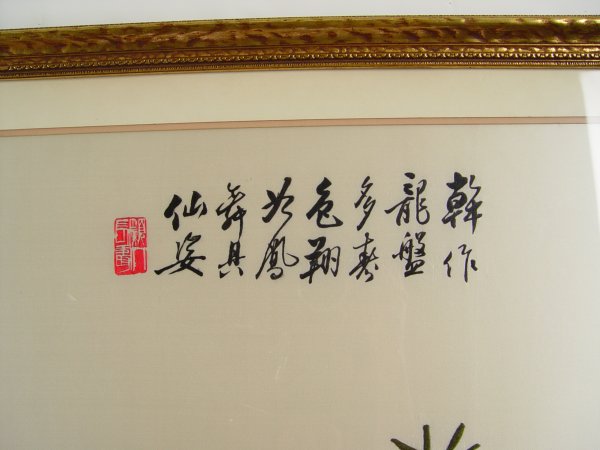 幹作
龍盤
多春
色翔
如鳳
舞具
仙姿